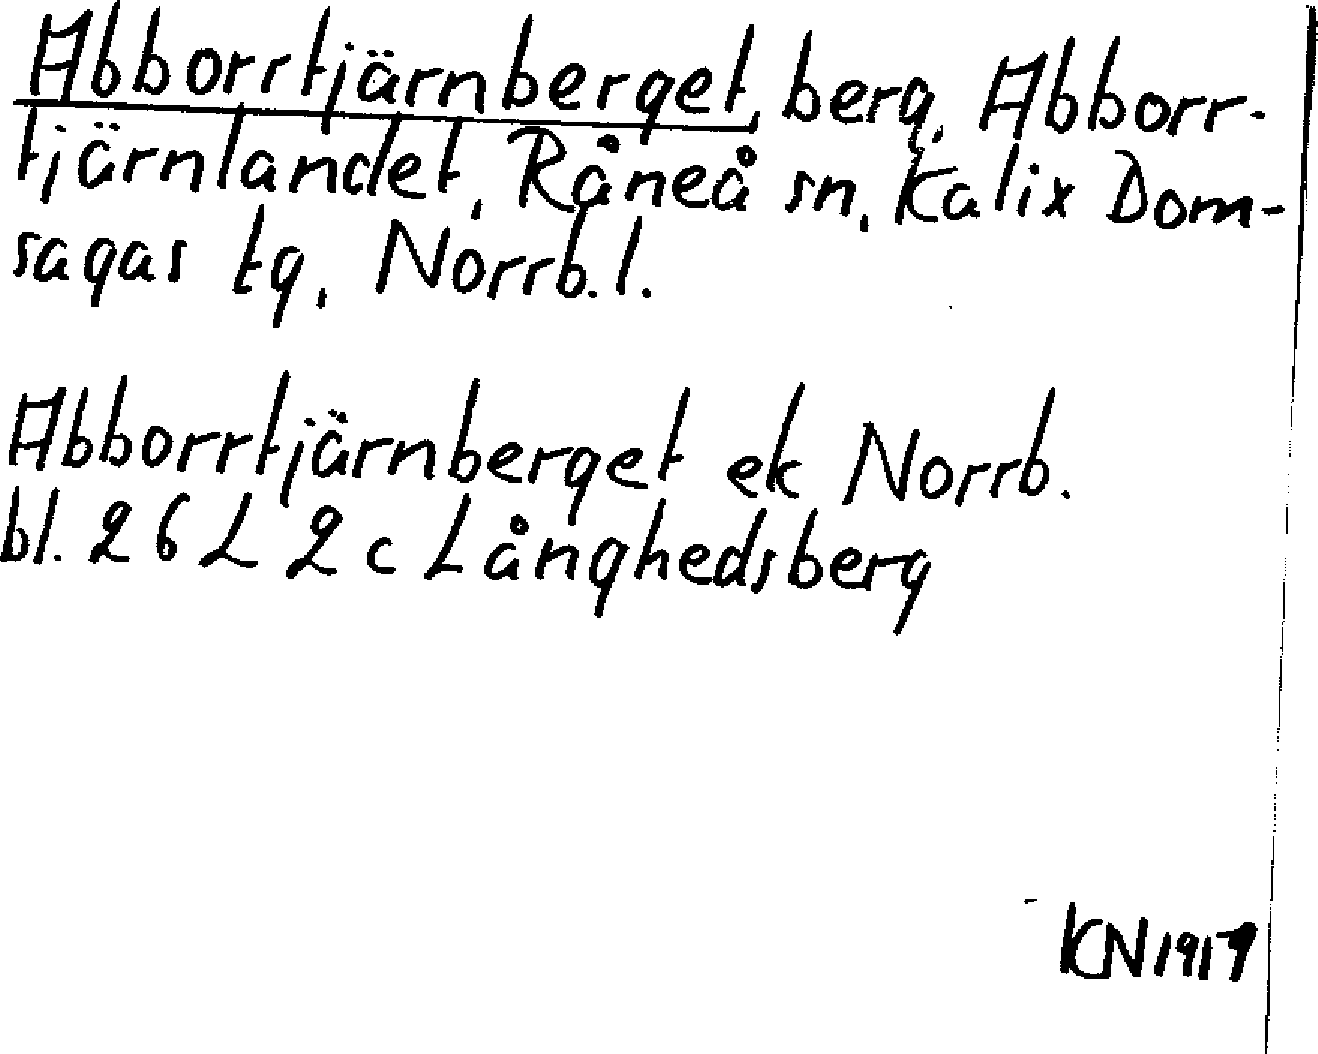 Abborrtjärnberget, berg, Abborr-
tjärnlandet, Råneå sn, Kalix Dom-
sagas tg, Norrb. l.
Abborrtjärnberget ek Norrb.
bl. 26 L 2 c Långhedsberg
KN 1917